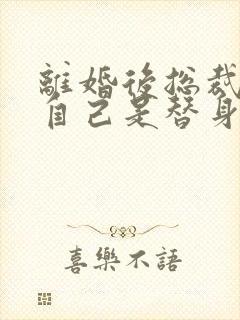 離婚後總裁
自己是替身
喜樂不語